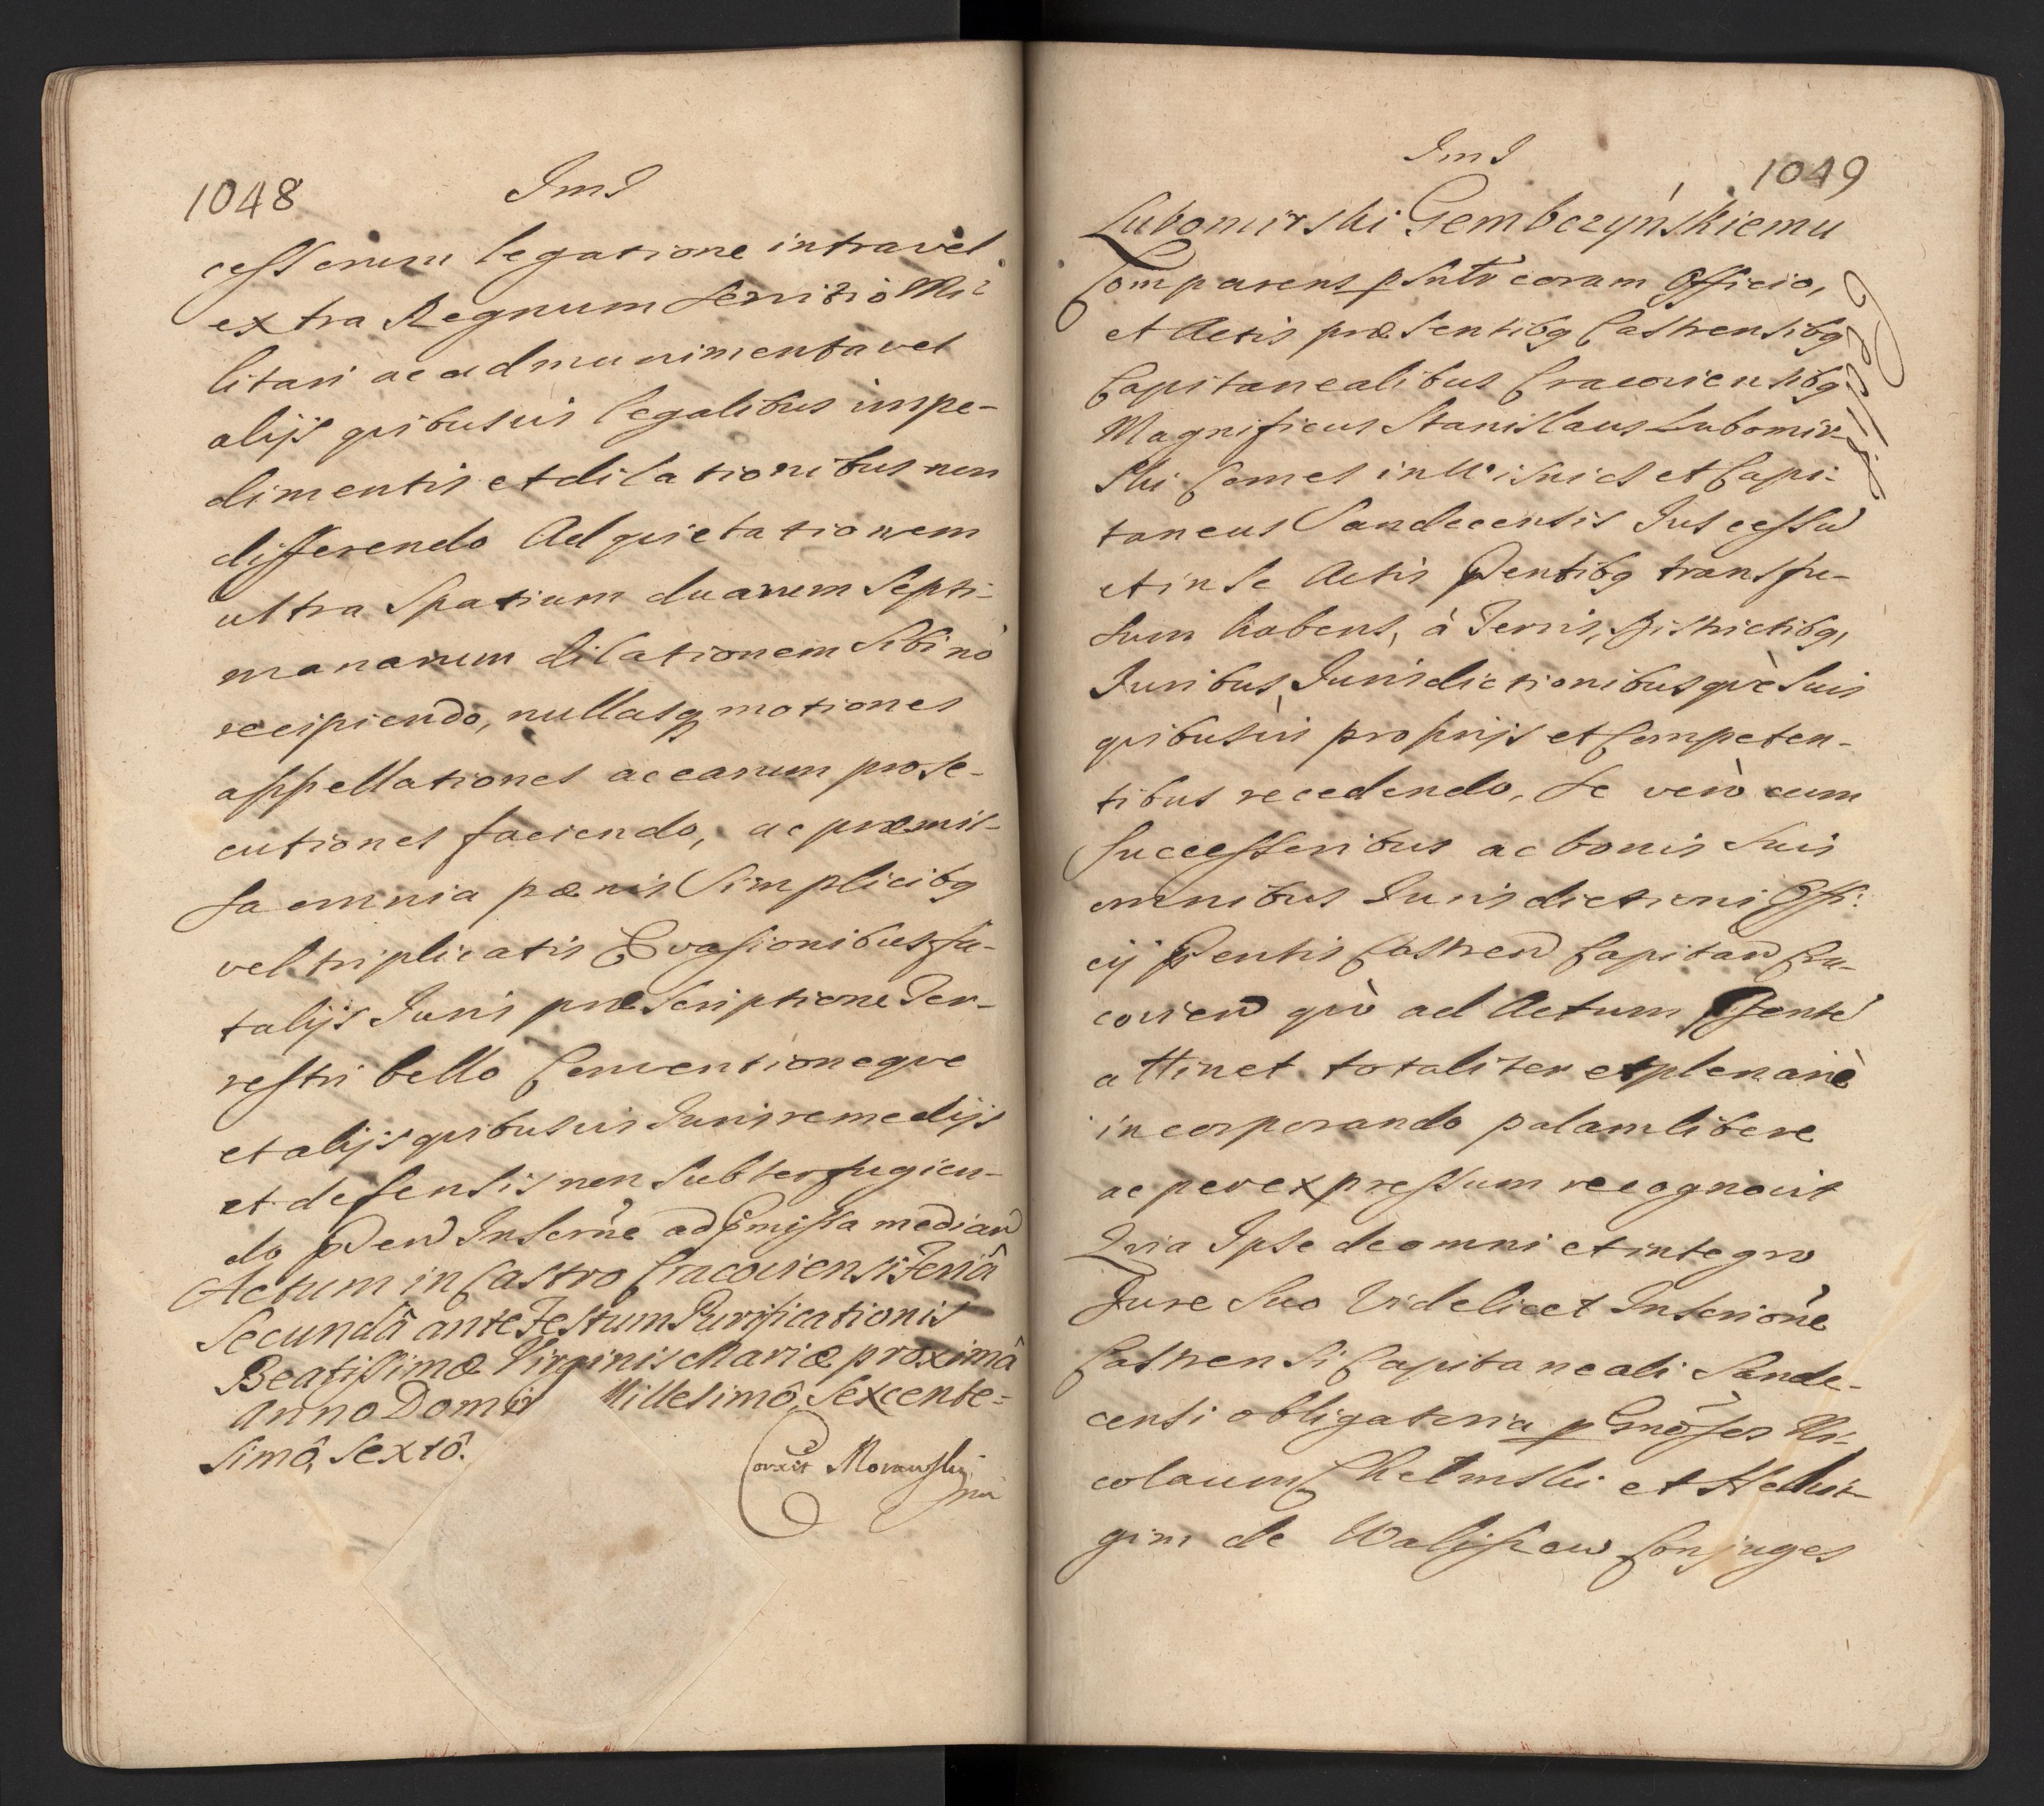 1048
ImJ
cesserum legatione intra vel
extra Regnum servitio Mi-
litari ac ad munimenta vel
alijs quibusvis legalibus impe-
dimentis et dilationibus non
differendo Ad quietationem
ultra spatium duarum Septi-
manarum dilationem sibi nō
recipiendo, nullasq motiones
appellationes ac earum prose-
cutiones faciendo, ac præmis-
sa omnia pænis Simplicibq
vel triplicatis Evasionibus fu-
talijs Juris præscriptione Ter-
restri bello Conventioneque
et alijs quibusvis Juris remedijs
et defensis non subterfugien-
do Inscrne ad pmissa median
Actum in Castro Cracoviensi Feriâ
Secundâ ante Festum Purificationis
Beatissimæ Virginis Mariæ proximâ
Anno Domini Millesimô, Sexcente=
simô, Sextô.
Corexit Morawski
mp
1049
ImJ
Lubomirski Gembczyńskiemu
Comparens psntr coram Officio,
et Actis præsentibq Castrensibq
Capitanealibus Cracoviensibq
Magnificus Stanislaus Lubomir-
ski Comes in Wisnicz et Capi-
taneus Sandecensis Jus cessū
et in se Actis pntibq transfu-
sum habens, à Terris, Districtibq,
Juribus, Jurisdictionibusquè suis
quibusvis proprijs et Competen-
tibus recedendo, se verò cum
Successoribus ac bonis suis
omnibus Jurisdictioni Offi-
cij pntis Castren Capitan Cra-
covien quò ad Actum pntē
attinet totaliter et plenariè
incorporando palam libere
ac per expressum recognovit
Quia Ipse de omni et integro
Jure suo Videlicet Inscriōne
Castrensi Capitaneali Sande-
censi obligatoria p Gnōsos Ni-
colaum Chelmski et Hedvi-
gim de Conjuges
Cessio